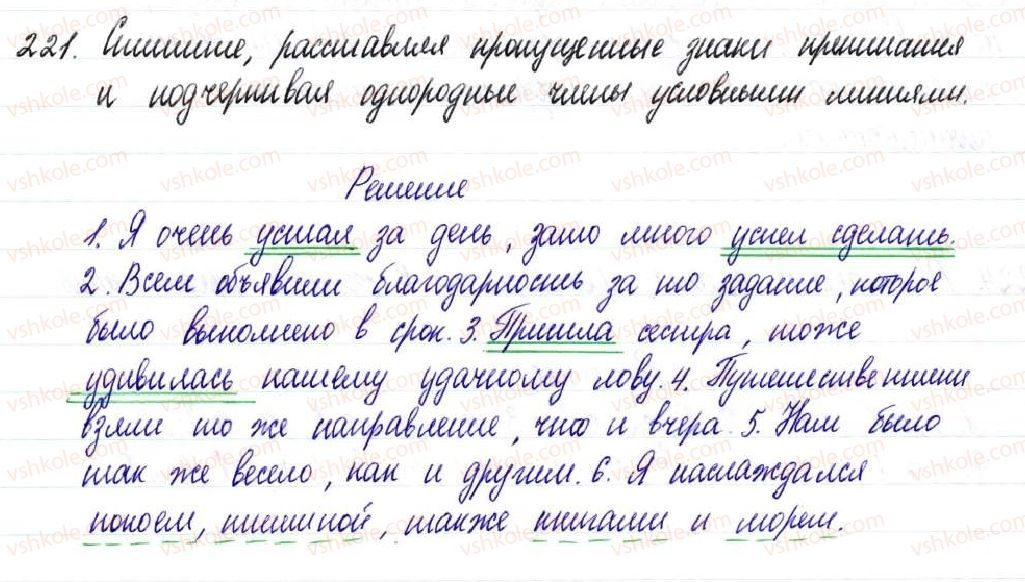 221. Спишите, расставляя пропущенные знаки препинания
и подчеркивая однородные члены условными линиями.
Решение
1. Я очень устал за день, зато много успел сделать.
2. Всем объявили благодарность за то задание, которое
было выполнено в срок. 3. Пришла сестра, тоже
удивилась нашему удачному лову. 4. Путешественники
взяли то же направление, что и вчера. 5. Нам было
так же весело, как и другим. 6. Я наслаждался
покоем, тишиной, также книгами и морем.